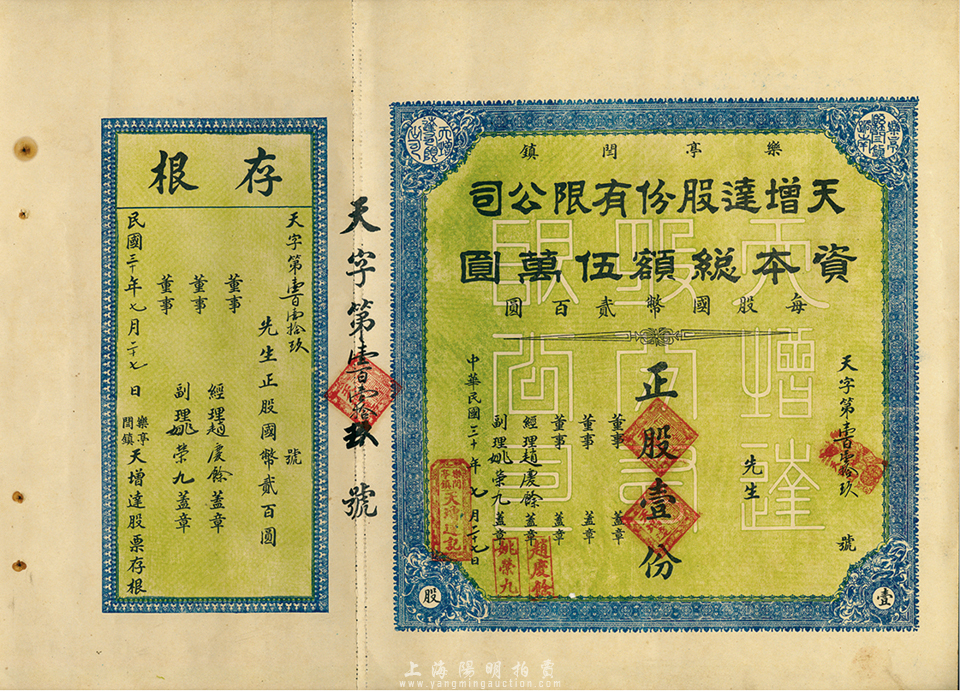 樂亭閆鎮
天增達股份有限公司
資本總額伍萬圓
每股國幣貳百圓
天字第壹百壹拾玖號
先生
正股壹份
董事 蓋章
董事 蓋章
董事 蓋章
經理趙慶餘 蓋章
副理姚榮九 蓋章
中華民國三十年七月二十七日
趙慶餘
姚榮九
壹
股
天字第壹百壹拾玖號
存根
天字第壹百壹拾玖號
先生正股國幣貳百圓
董事
董事
董事
經理趙慶餘蓋章
副理姚榮九蓋章
民國三十年七月二十七日
樂亭閆鎮天增達股票存根
上海陽明拍賣
www.yangmingauction.com